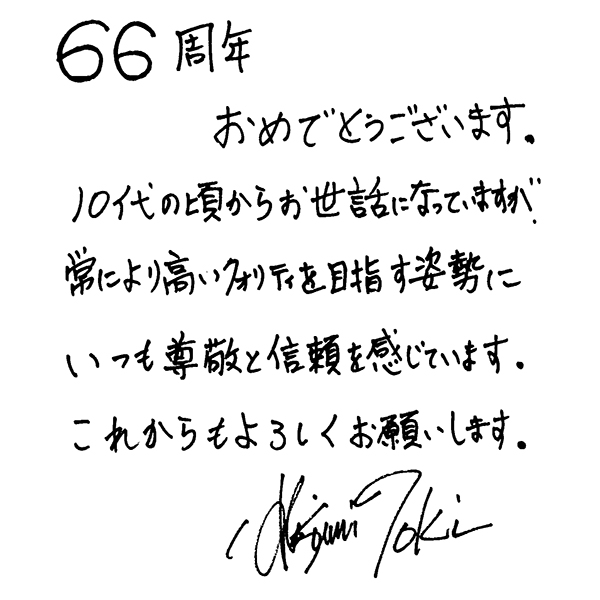 66周年
おめでとうございます。
10代の頃からお世話になっていますが、
常により高いクォリティを目指す姿勢に
いつも尊敬と信頼を感じています。
これからもよろしくお願いします。
Toki